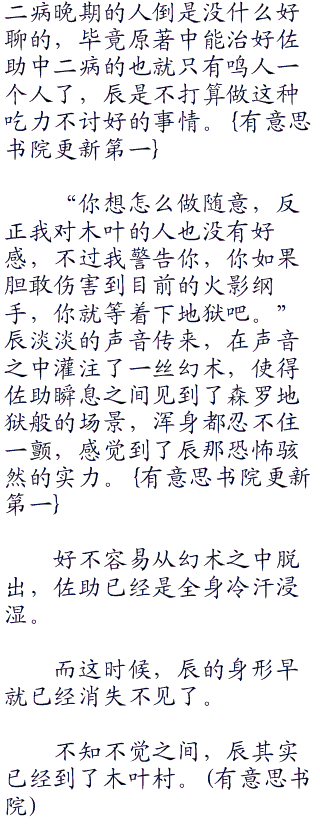 二病晚期的人倒是没什么好
聊的，毕竟原著中能治好佐
助中二病的也就只有鸣人一
个人了，辰是不打算做这种
吃力不讨好的事情。{有意思
书院更新第一}
“你想怎么做随意，反
正我对木叶的人也没有好
感，不过我警告你，你如果
胆敢伤害到目前的火影纲
手，你就等着下地狱吧。”
辰淡淡的声音传来，在声音
之中灌注了一丝幻术，使得
佐助瞬息之间见到了森罗地
狱般的场景，浑身都忍不住
一颤，感觉到了辰那恐怖骇
然的实力。{有意思书院更新
第一}
好不容易从幻术之中脱
出，佐助已经是全身冷汗浸
湿。
而这时候，辰的身形早
就已经消失不见了。
不知不觉之间，辰其实
已经到了木叶村。(有意思书
院)